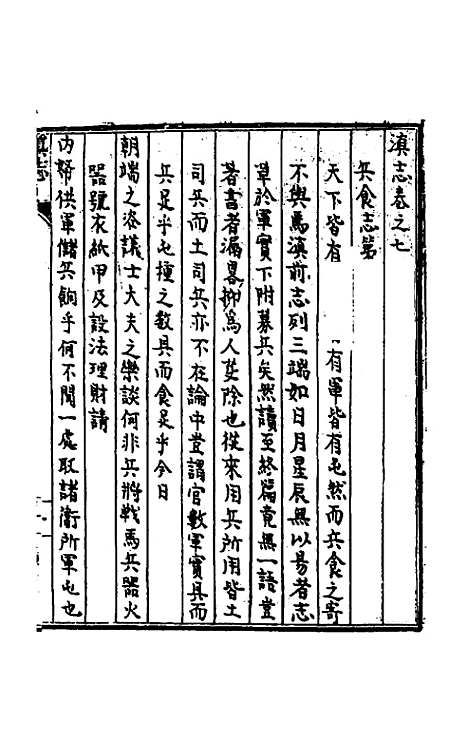 滇志卷之七
兵食志第
天下皆有 有軍皆有屯然而兵食之寄
不與焉滇前志列三端如日月星辰無以易者志
草於軍實下附募兵矣然讀至終篇竟無一語豈
著書者漏畧抑爲人芟除也從來用兵所用皆土
司兵而土司兵亦不在論中豈謂官數軍實具而
兵足乎屯種之數具而食足乎今日
朝端之㳫議士大夫之樂談何非兵將戰馬兵器火
器號衣紙甲及設法理財請
內帑供軍儲兵餉乎何不聞一處取諸衛所軍屯也
滇志